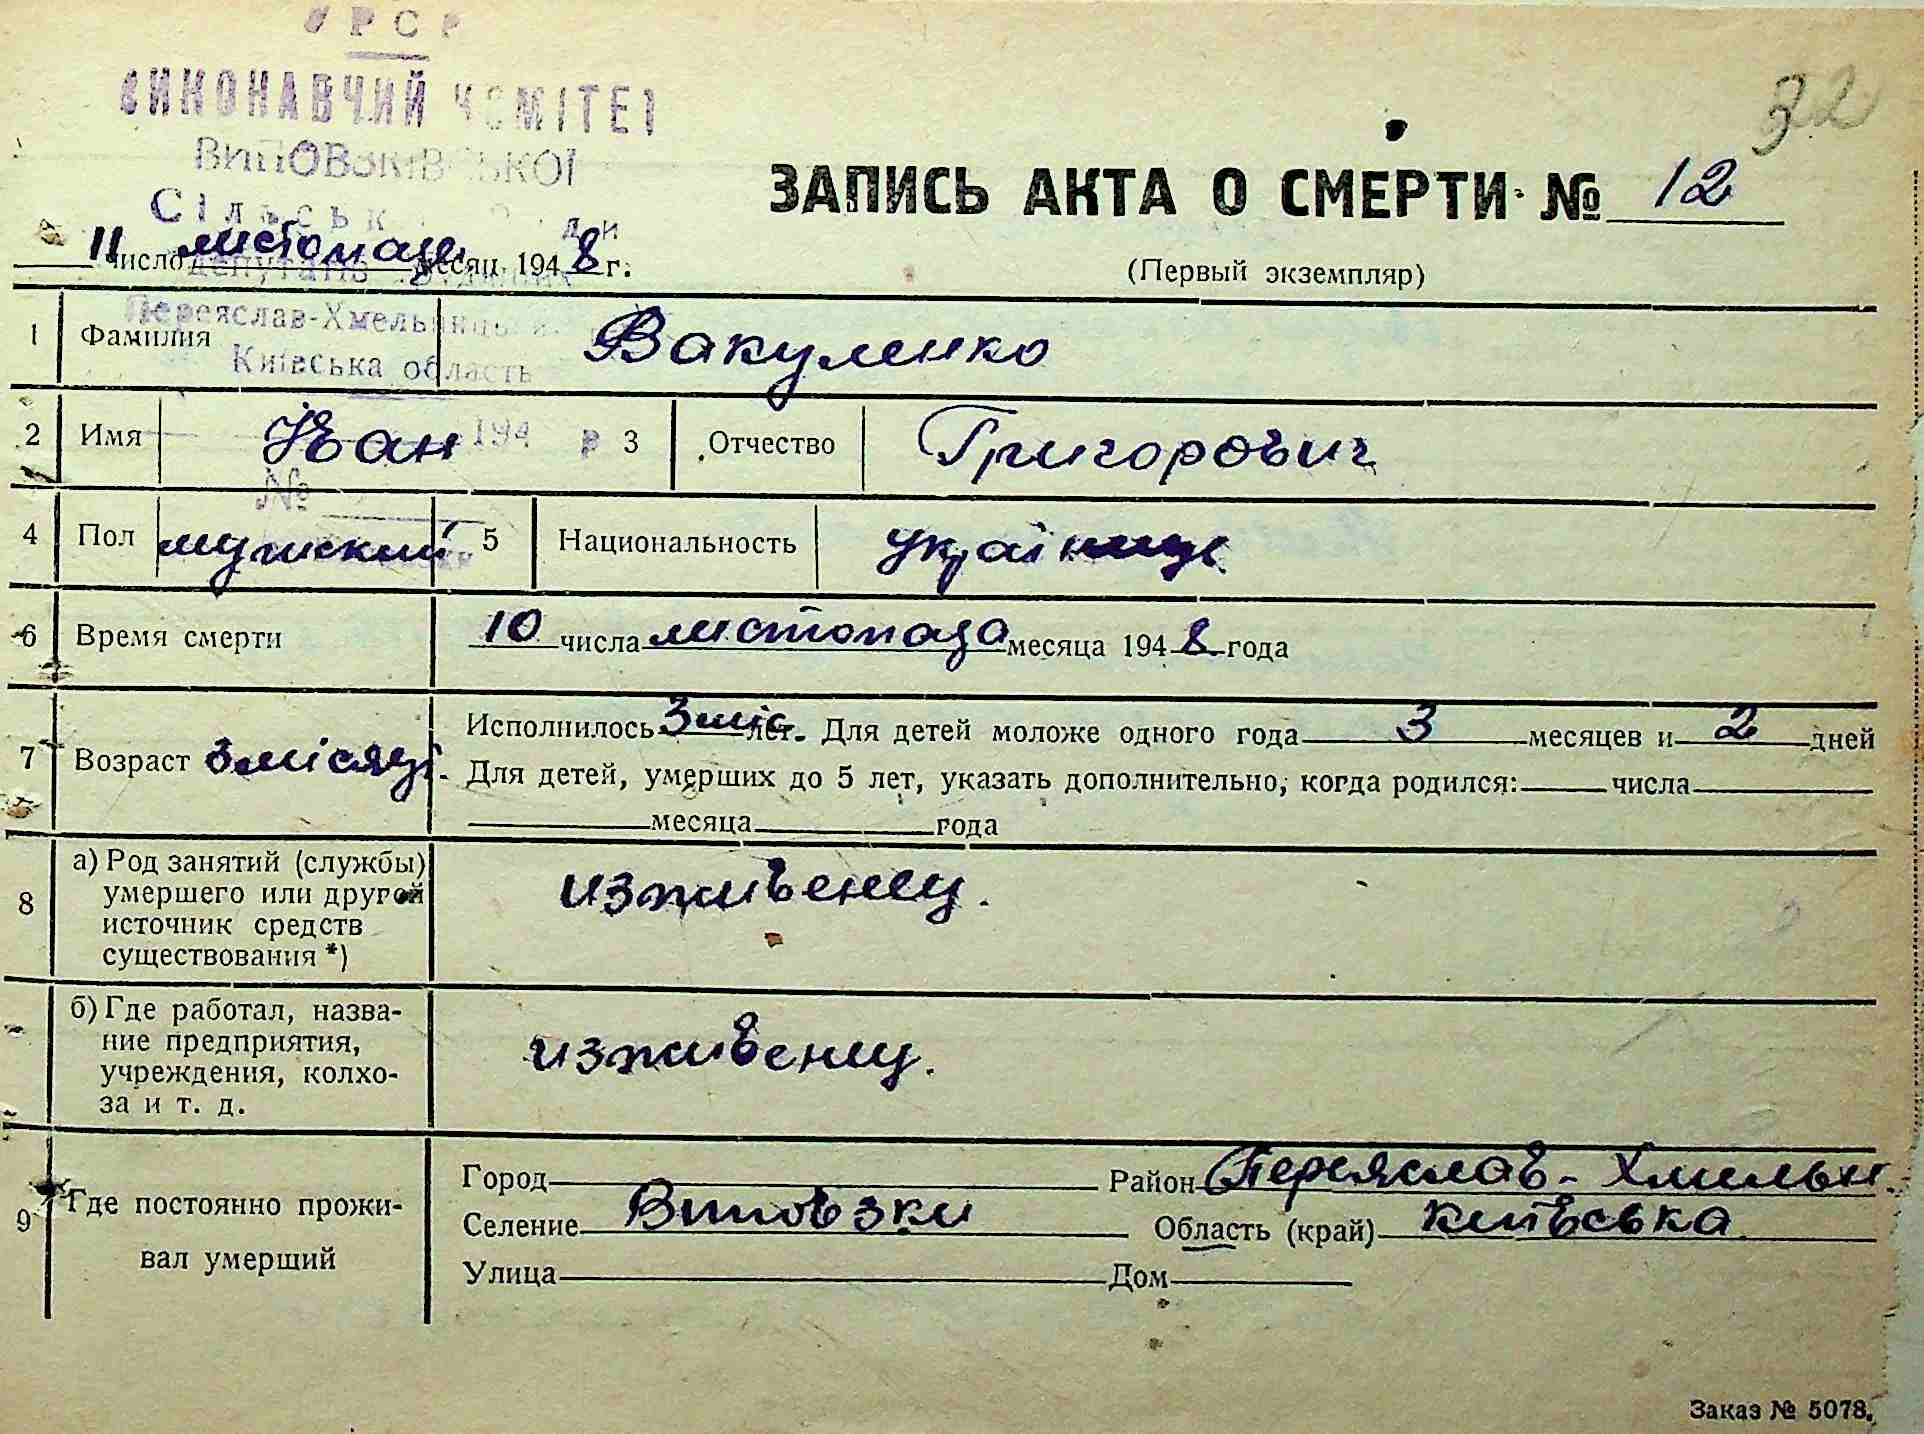 УРСР
ВИКОНАВЧИЙ КОМІТЕТ
ВИПОВЗКІВСЬКОЇ
Сільської Ради
депутатів трудящих
Переяслав-Хмельницьк
Київська область
194 р
№
32
ЗАПИСЬ АКТА О СМЕРТИ № 12
(Первый экземпляр)
11 число листопада месяц 1948 г.
1 Фамилия Вакуленко
2 Имя Іван 3 Отчество Григорович
4 Пол мужский 5 Национальность українец
6 Время смерти 10 числа листопада месяца 1948 года
7 Возраст 3 місяці. Исполнилось 3 міс. лет. Для детей моложе одного года 3 месяцев и 2 дней
Для детей, умерших до 5 лет, указать дополнительно, когда родился: числа
месяца года
8 а) Род занятий (службы)
умершего или другой
источник средств
существования *)
изживенец.
б) Где работал, назва-
ние предприятия,
учреждения, колхо-
за и т. д.
изживенец.
9 Где постоянно прожи-
вал умерший
Город Район Переяслав-Хмельн.
Селение Виповзки Область (край) Київська
Улица Дом
Заказ № 5078.